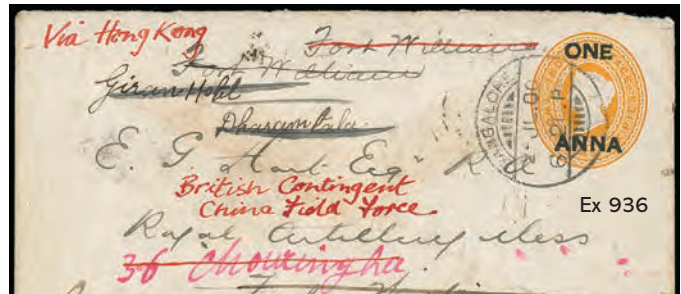 Via Hong Kong
Fort William
Fort William
ONE
Giran Hotel
Dharamsala
BANGALORE
ANNA
E. G. Hart Esqr R A
British Contingent
China Field Force
Ex 936
Royal Artillery Mess
36 Chowringhee.